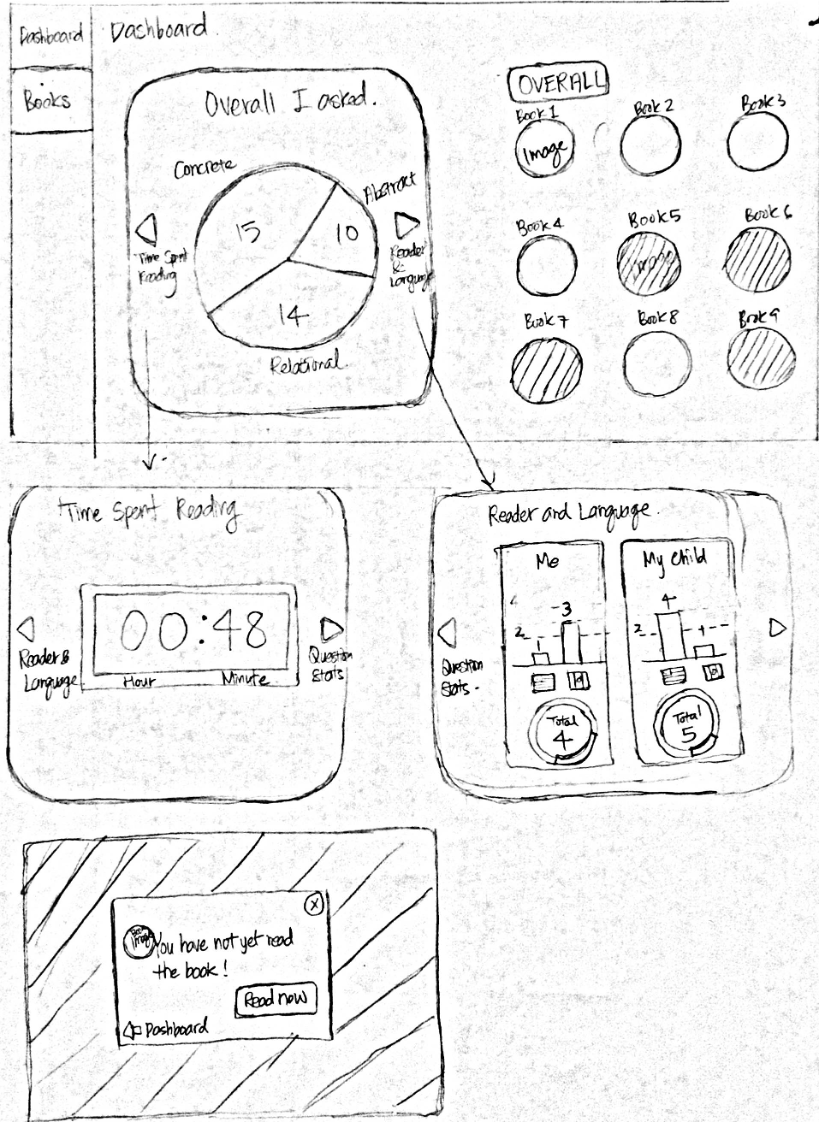 Dashboard
Dashboard
Books
Overall I asked.
Concrete
Abstract
15
10
14
Relational
Time Spent
Reading
Reader
&
Language
OVERALL
Book 1
Book 2
Book 3
Image
Book 4
Book 5
Book 6
Book 7
Book 8
Book 9
Time Spent Reading
00:48
Hour
Minute
Reader &
Language
Question
Stats
Reader and Language.
Me
My Child
2
1
3
2
4
1
Question
Stats.
Total
4
Total
5
X
You have not yet read
the book!
Read now
Dashboard